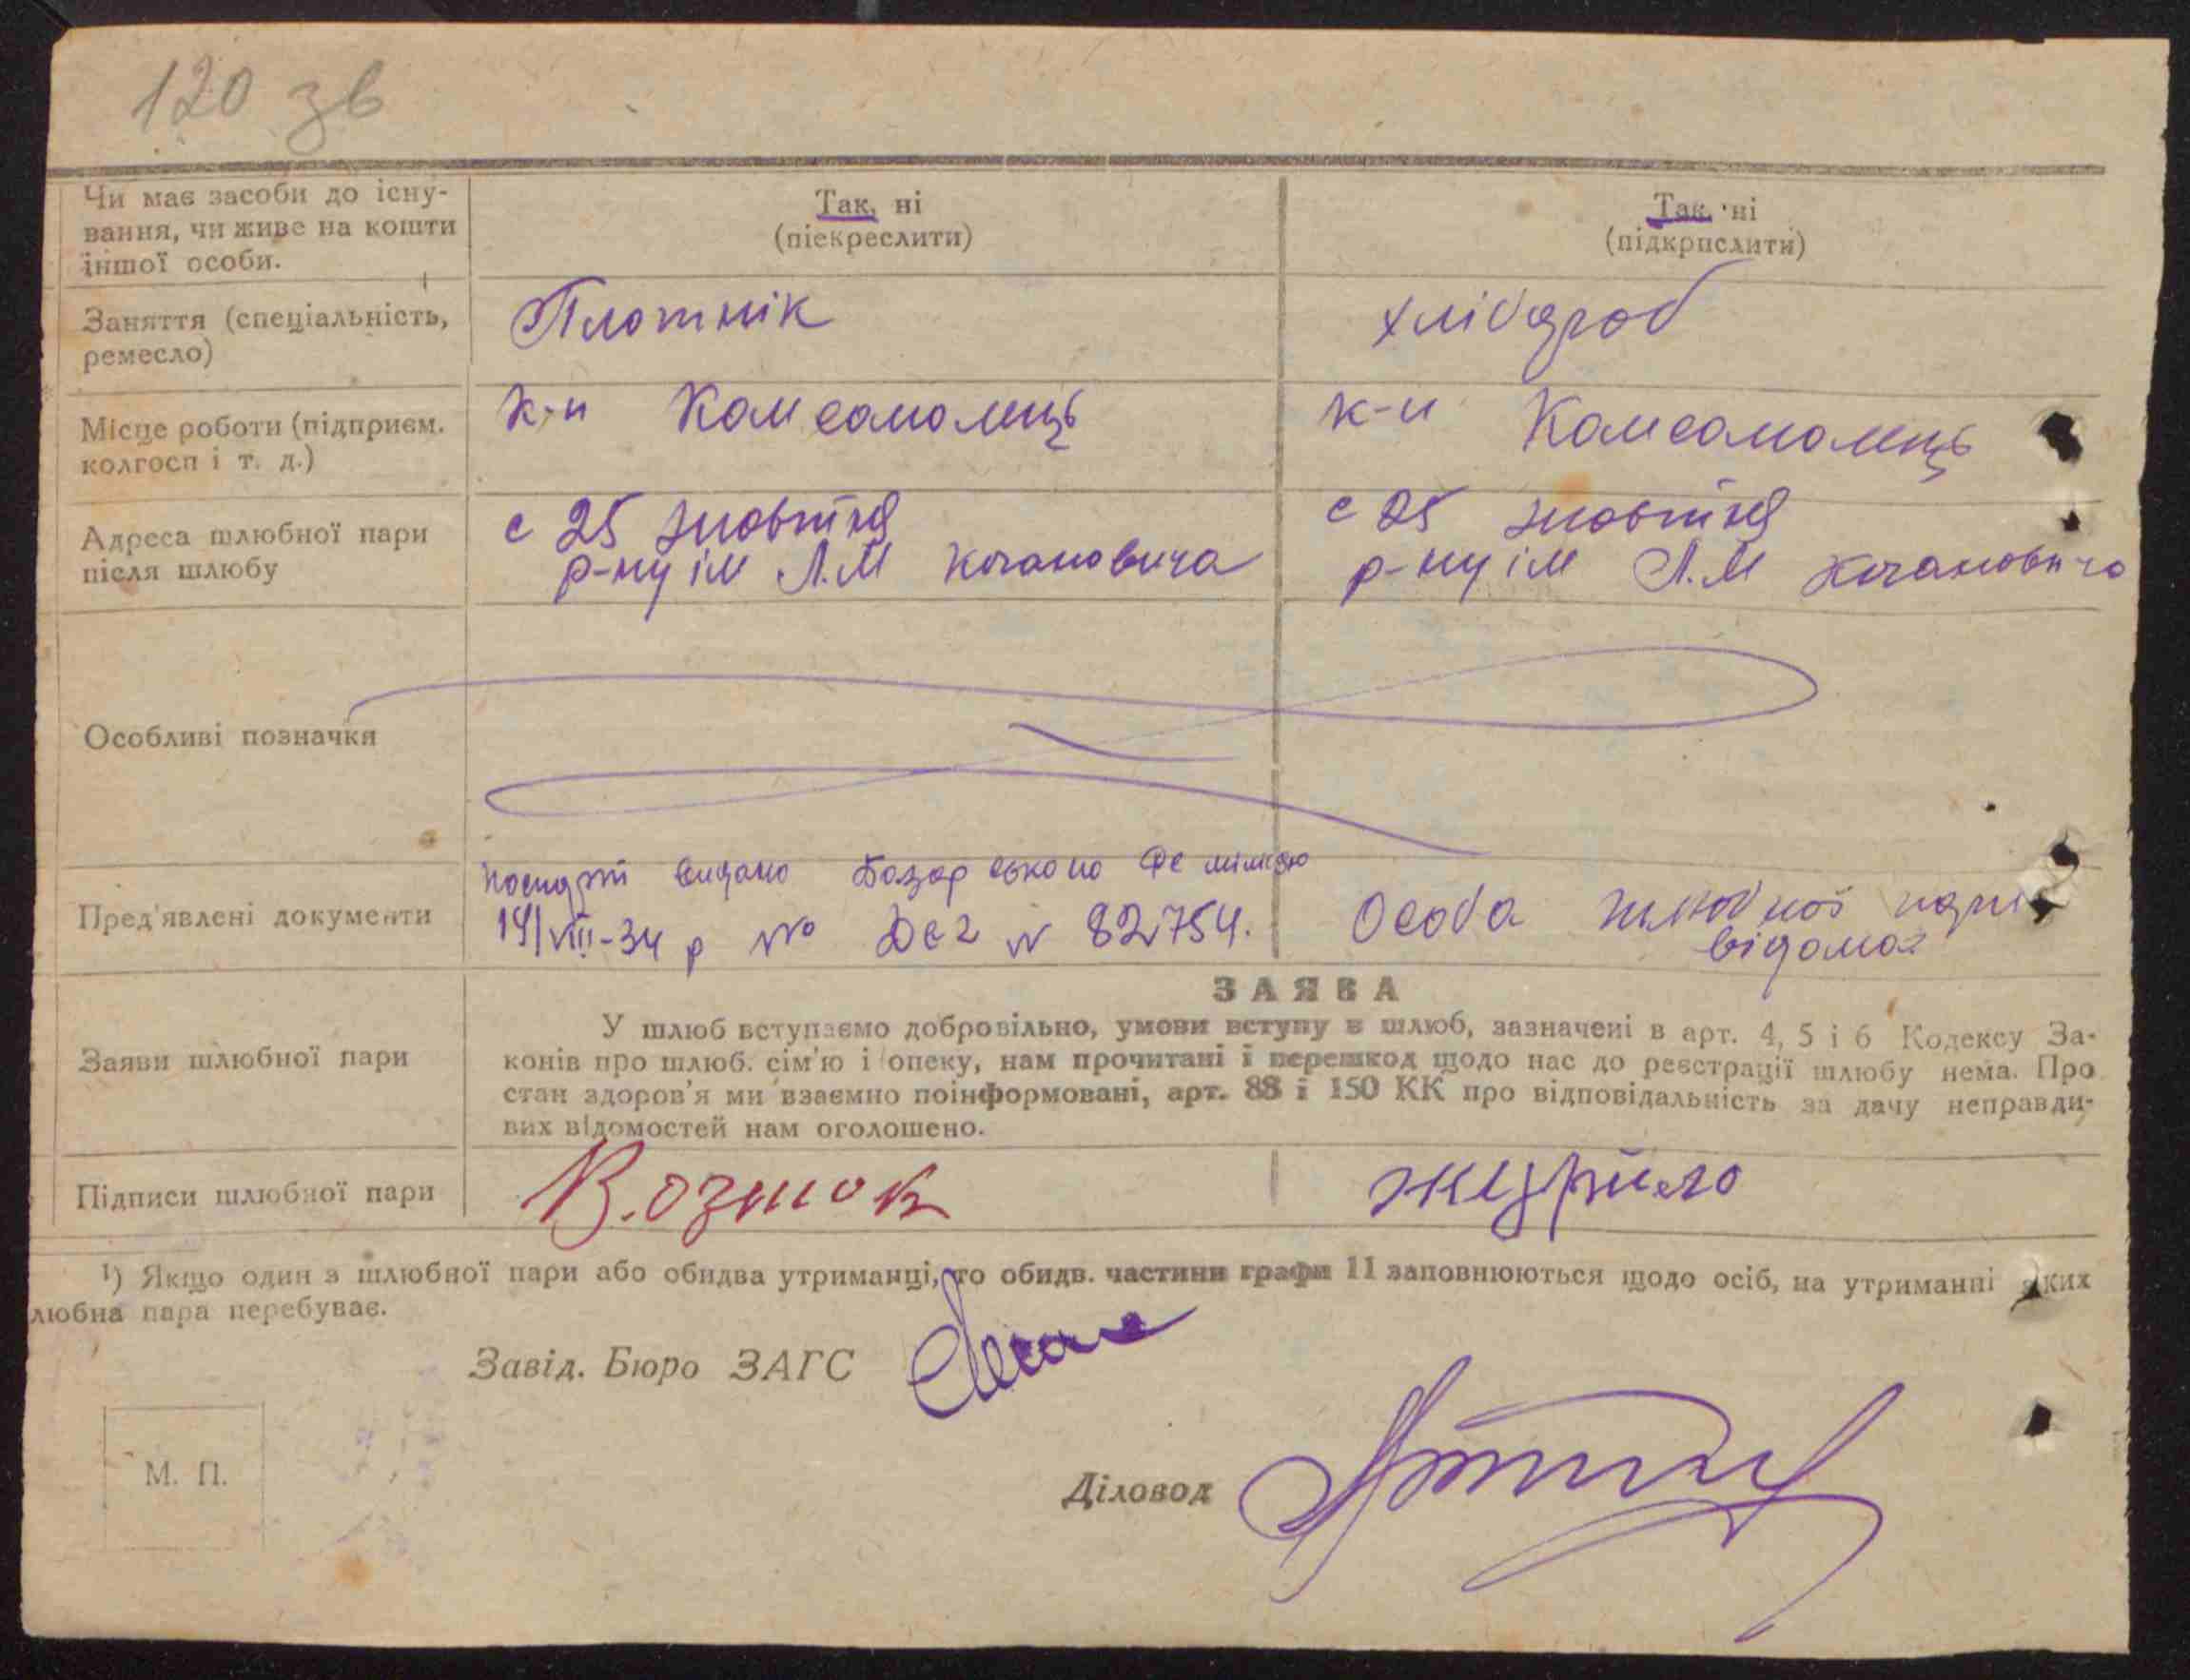 120 зв
Чи має засоби до існу-
вання, чи живе на кошти
іншої особи.
Так, ні
(піекреслити)
Так, ні
(підкрпслити)
Заняття (спеціальність,
ремесло)
Плотнік
хлібороб
Місце роботи (підприєм.
колгосп і т. д.)
к-п Комсомолець
к-п Комсомолець
Адреса шлюбної пари
після шлюбу
с 25 жовтня
р-ну ім Л.М Когановича
с 25 жовтня
р-ну ім Л.М Когановича
Особливі позначки
Пред'явлені документи
видано
14/VIII-34 р № 82754.
Особа шлюбної
відома
Заяви шлюбної пари
ЗАЯВА
У шлюб вступаємо добровільно, умови вступу в шлюб, зазначені в арт. 4, 5 і 6 Кодексу За-
конів про шлюб. сім'ю і опеку, нам прочитані і перешкод щодо нас до реєстрації шлюбу нема. Про
стан здоров'я ми взаємно поінформовані, арт. 88 і 150 КК про відповідальність за дачу неправди-
вих відомостей нам оголошено.
Підписи шлюбної пари
В.озмок
¹) Якщо один з шлюбної пари або обидва утриманці, то обидв. частини графи 11 заповнюються щодо осіб, на утриманні яких
любна пара перебуває.
Завід. Бюро ЗАГС
М. П.
Діловод